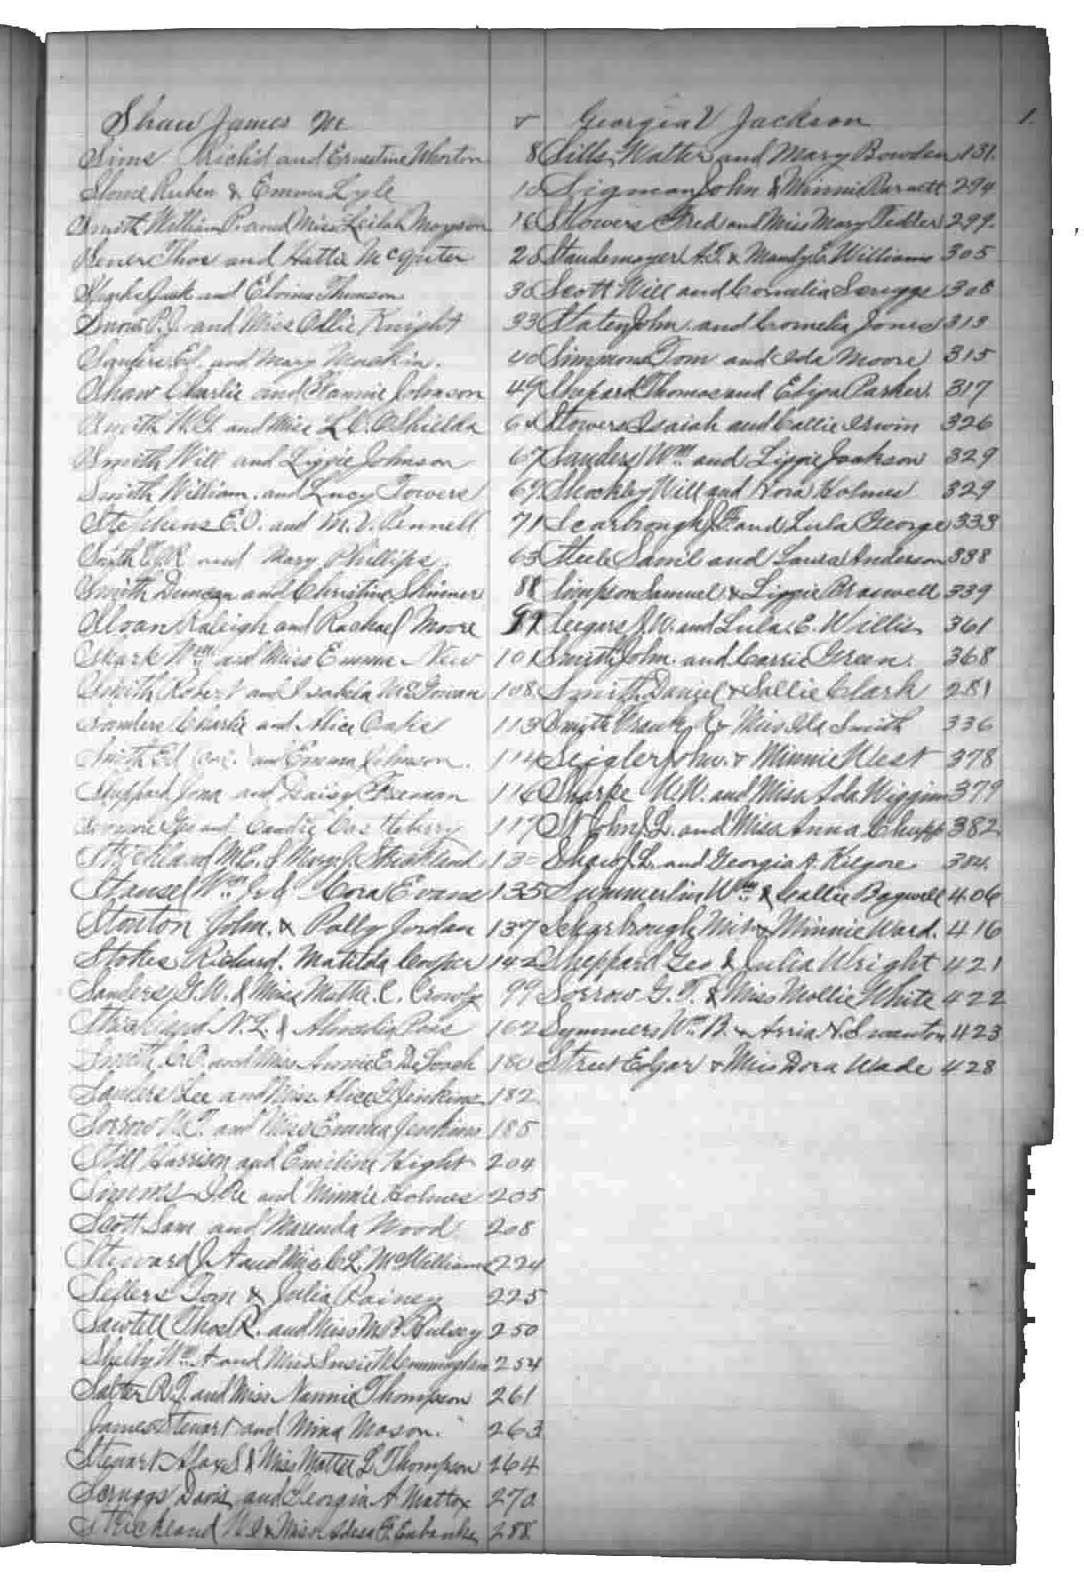 Shaw James M & Georgia V Jackson 1.
Sims Rich'd and Ernestine Whorton 8
Stone Ruben & Emma Lyle 10
Smith William P. and Miss Leilah Mayson 16
Thos and Hattie McGuter 25
and Elvina Thomson 30
Snow P. J. and Miss Ollie Knight 33
Ed. and Mary 40
Shaw Charlie and Fannie Johnson 49
Smith W. H. and Miss L. C. O'Shields 64
Smith Will and Lizzie Johnson 67
Smith William. and Lucy Towers 69
Stephens E. O. and M. V. Pennell 71
Smith E. R. and Mary Phillips 63
Smith Duncan and Christine Skinner 88
Sloan Raleigh and Rachael Moore 97
Wm and Miss Emma New 101
Smith Robert and Isabela McGowan 108
Sanders Charlie and Alice Oaks 113
Smith Ed (Col.) and Emma Johnson. 114
Sheppard Jona and Daisy Freeman 116
and Candie Castleberry 117
Strickland M. E. & Mary J. Strickland 130
Stansel Wm Jr & Cora Evans 135
Stonton John. & Polly Jordan 137
Stokes Richard. Matilda Cooper 142
Sanders G. W. & Miss Mattie. C. Crowly 99
Strickland N. L. & 162
Smith C. O. and Miss Annie E. DeLoach 180
Sanders Lee and Miss Alice G Jinkins 182
Sorrow W. T. and Miss Emma Jenkins 185
Still Harrison and Emiline Hight 204
Simms and Minnie Holmes 205
Scott Sam and Marenda Wood 208
Steward J. A and Miss C. L. McWilliams 224
Sellers Tom & Julia Rainey 225
Sawtell Thos R. and Miss M. V. Hulsey 250
Shelby Wm. A and Miss Susie M Cunningham 254
Salter R. T. and Miss Nannie Thompson 261
James Stewart and Mina Mason. 263
Stewart & Miss Mattie L. Thompson 264
Scruggs Davis and Georgia A Mattox 270
Strickland W. & Miss F. Eubanks 288
Sills Walter and Mary Bowden 131.
Sigman John & Minnie Barnett 294
Stowers Fred and Miss Mary Tedder 299.
Staudemayer A. J. & Mandy E. Williams 305
Scott Will and Cornelia Scruggs 308
Staten John and Cornelia Jones 313
Simmons Tom and Ida Moore 315
Shepard Thomas and Eliza Parker. 317
Stowers Isaiah and Callie Irwin 326
Sanders Wm and Lizzie Jackson 329
Shockley Will and Nora Holmes 329
Scarbrough J. F. and Lula George 333
Steele Sam'l and Laura Anderson 338
Simpson Samuel & Lizzie Braswell 339
Seegars J. W. and Lula E. Willis 361
Smith John. and Carrie Green. 368
Smith Daniel & Sallie Clark 281
Smyth Frank C & Miss Ila Smith 336
Seigler John. & Minnie West 378
Sharke W. W. and Miss Ada Wiggins 379
St John J. L. and Miss Anna Chupp 382
Shaw J. L. and Georgia A. Kilgore 384.
Summerlin Wm & Callie Bagwell 406
Scharbrough & Minnie Ward. 416
Sheppard Leo & Julia Wright 421
Sorrow G. T. & Miss Mollie White 422
Summers Wm B. & Arria N. Swanton 423
Street Edgar & Miss Dora Wade 428